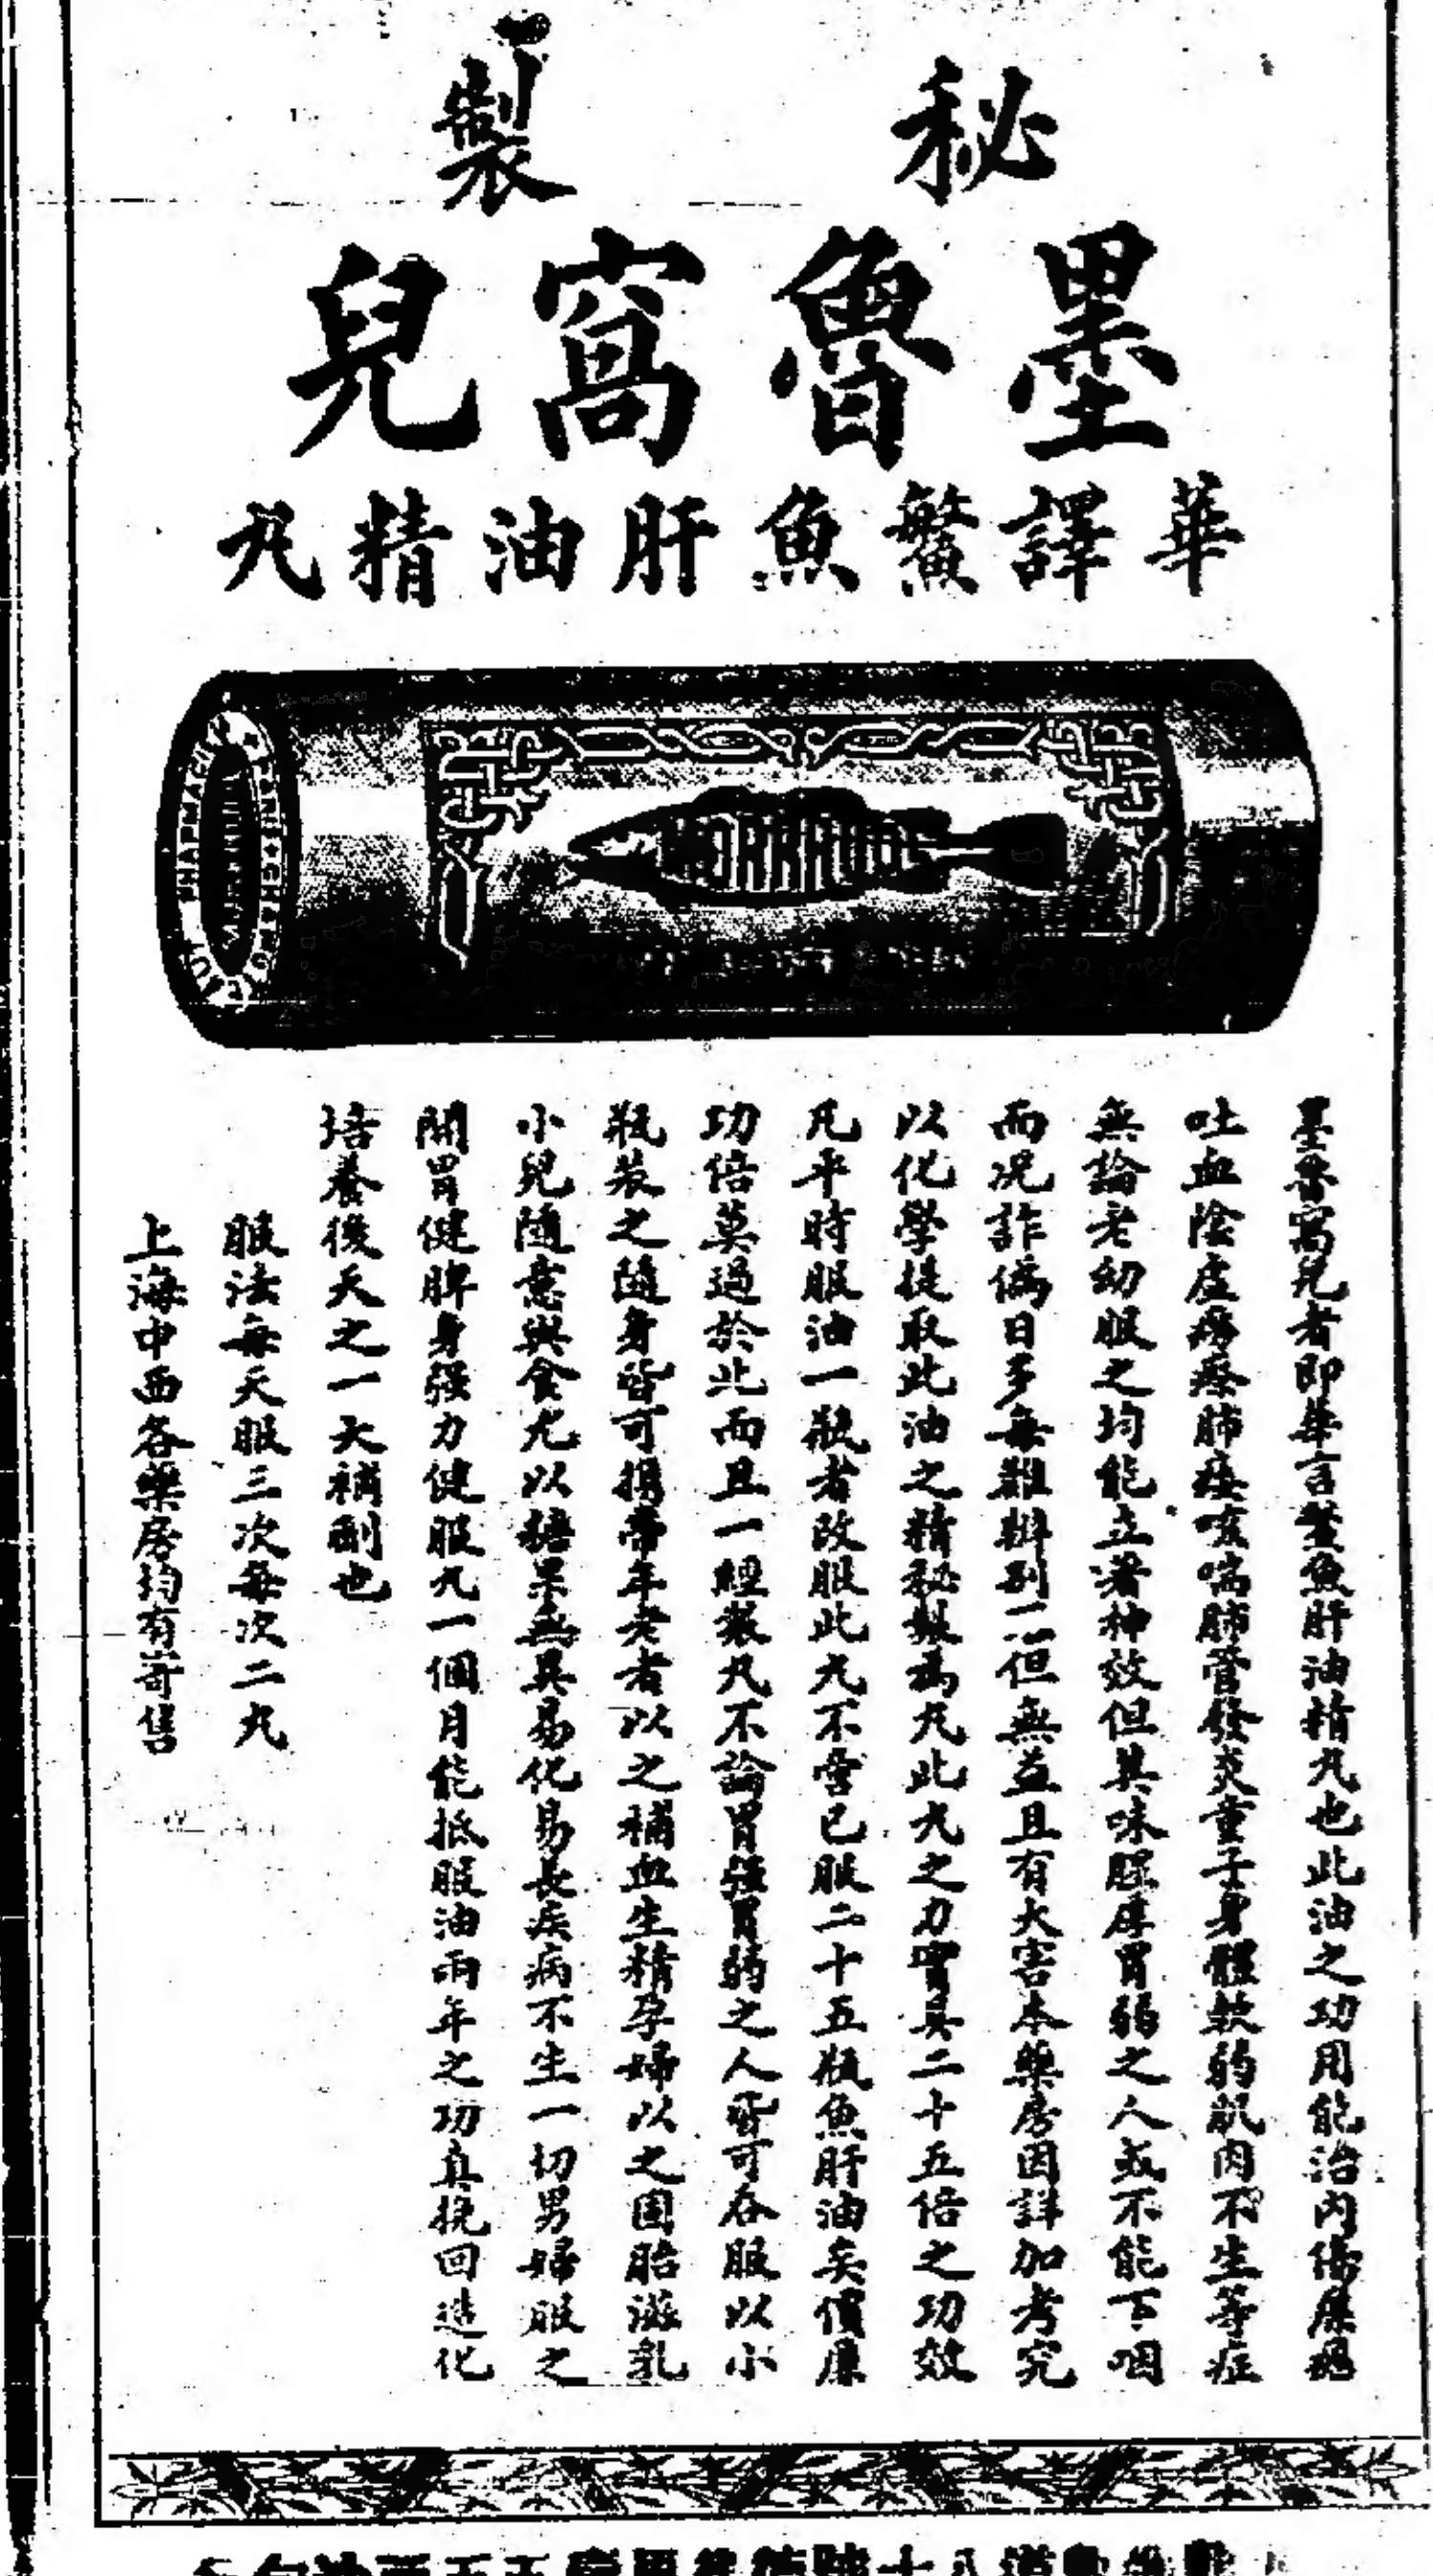 秘製
墨魯窩兒
華譯鰵魚肝油精丸
MORRHUOL
墨魯窩兒者即華言鰵魚肝油精丸也此油之功用能治內傷
吐血陰虛癆瘵肺痿咳喘肺管發炎童子身體軟弱肌肉不生等症
無論老幼服之均能立著神效但其味腥厚胃弱之人或不能下咽
而况詐偽日多每難辦別不但無益且有大害本藥房因詳加考究
以化學提取此油之精秘製為丸此丸之力實具二十五倍之功效
凡平時服油一瓶者改服此丸不啻已服二十五瓶魚肝油矣價廉
功倍莫過於此而且一經製丸不論胃強胃弱之人皆可吞服以小
瓶裝之隨身皆可攜帶年老者以之補血生精孕婦以之固胎滋乳
小兒隨意與食尤以糖菓無異易化易長疾病不生一切男婦服之
開胃健脾身强力健服丸一個月能抵服油兩年之功真挽回造化
培養後天之一大補劑也
服法每天服三次每次二丸
上海中西各藥房均有寄售